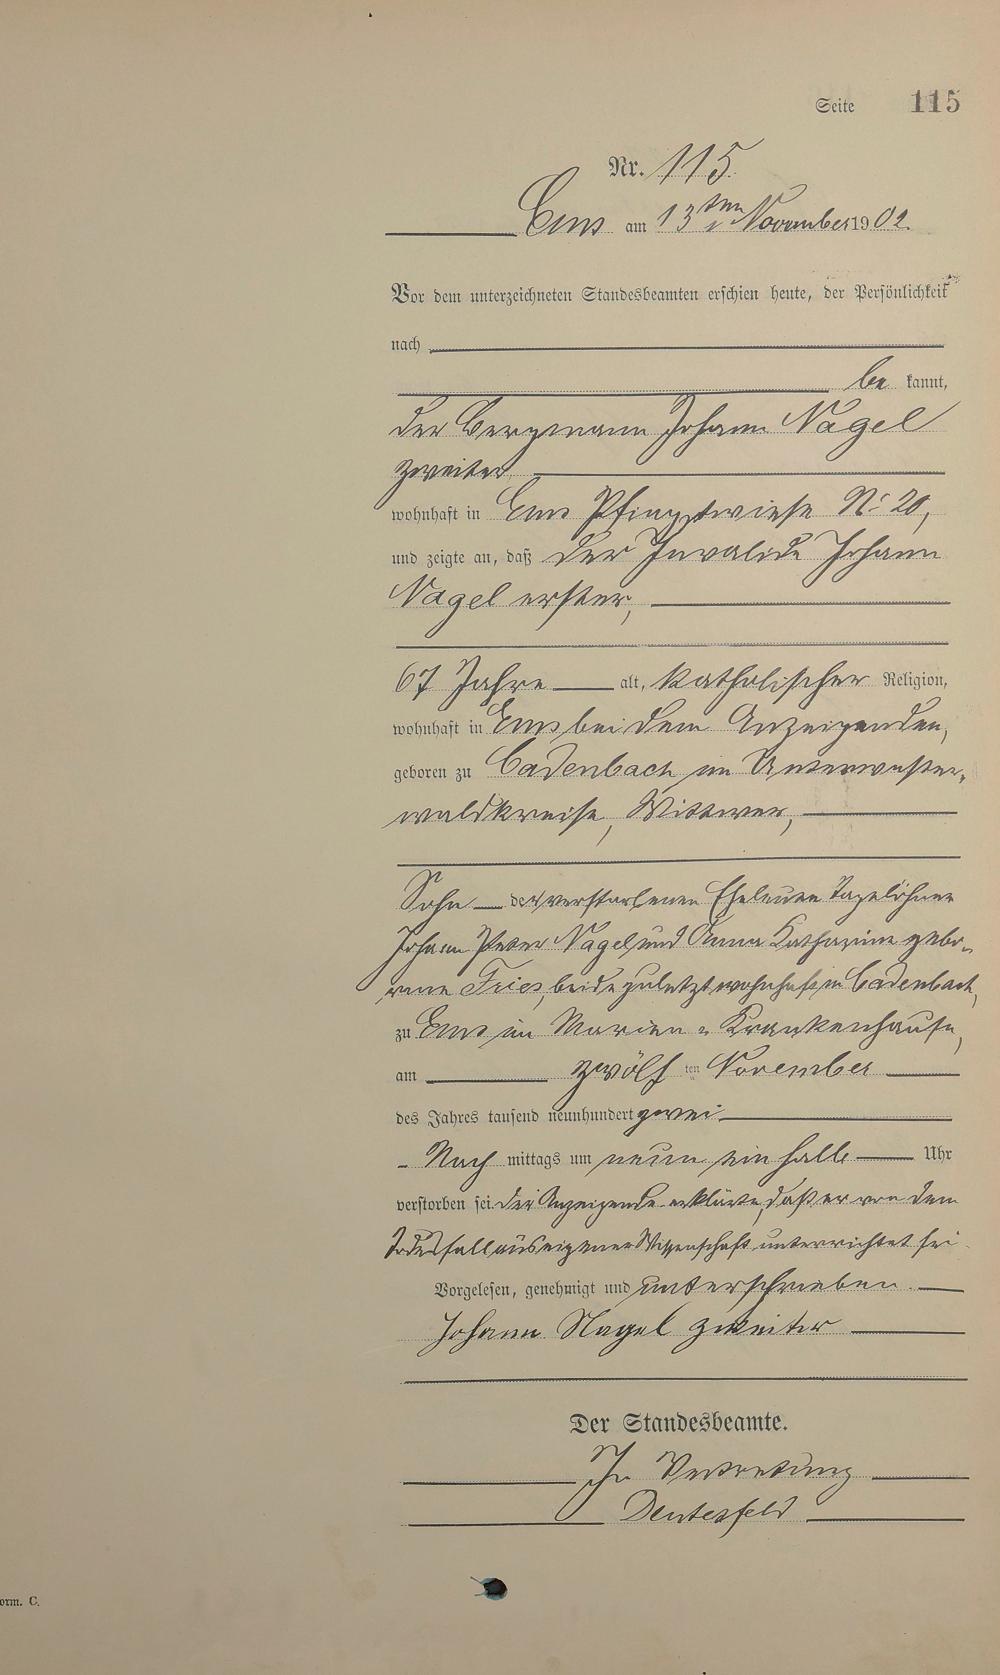 Seite 115
Nr. 115.
Ems am 13ten November 1902.
Vor dem unterzeichneten Standesbeamten erschien heute, der Persönlichkeit
nach
be kannt,
der Bergmann Johann Nagel
zweiter
wohnhaft in Ems Pfingstwiese No 20,
und zeigte an, daß der Invalide Johann
Nagel erster,
67 Jahre alt, katholischer Religion,
wohnhaft in Ems bei dem Anzeigenden,
geboren zu Cadenbach im Unterwester-
waldkreise, Wittwer,
Sohn der verstorbenen Eheleute Tagelöhner
Johann Peter Nagel und Anna Katharina gebo-
rene Fries, beide zuletzt wohnhaft in Cadenbach,
zu Ems im Marien-Krankenhause,
am zwölf ten November
des Jahres tausend neunhundert zwei
Nach mittags um neun ein halb Uhr
verstorben sei. Der Anzeigende erklärte, daß er von dem
Todesfall aus eigener Wissenschaft unterrichtet sei.
Vorgelesen, genehmigt und unterschrieben.
Johann Nagel zweiter
Der Standesbeamte.
In Vertretung
orm. C.